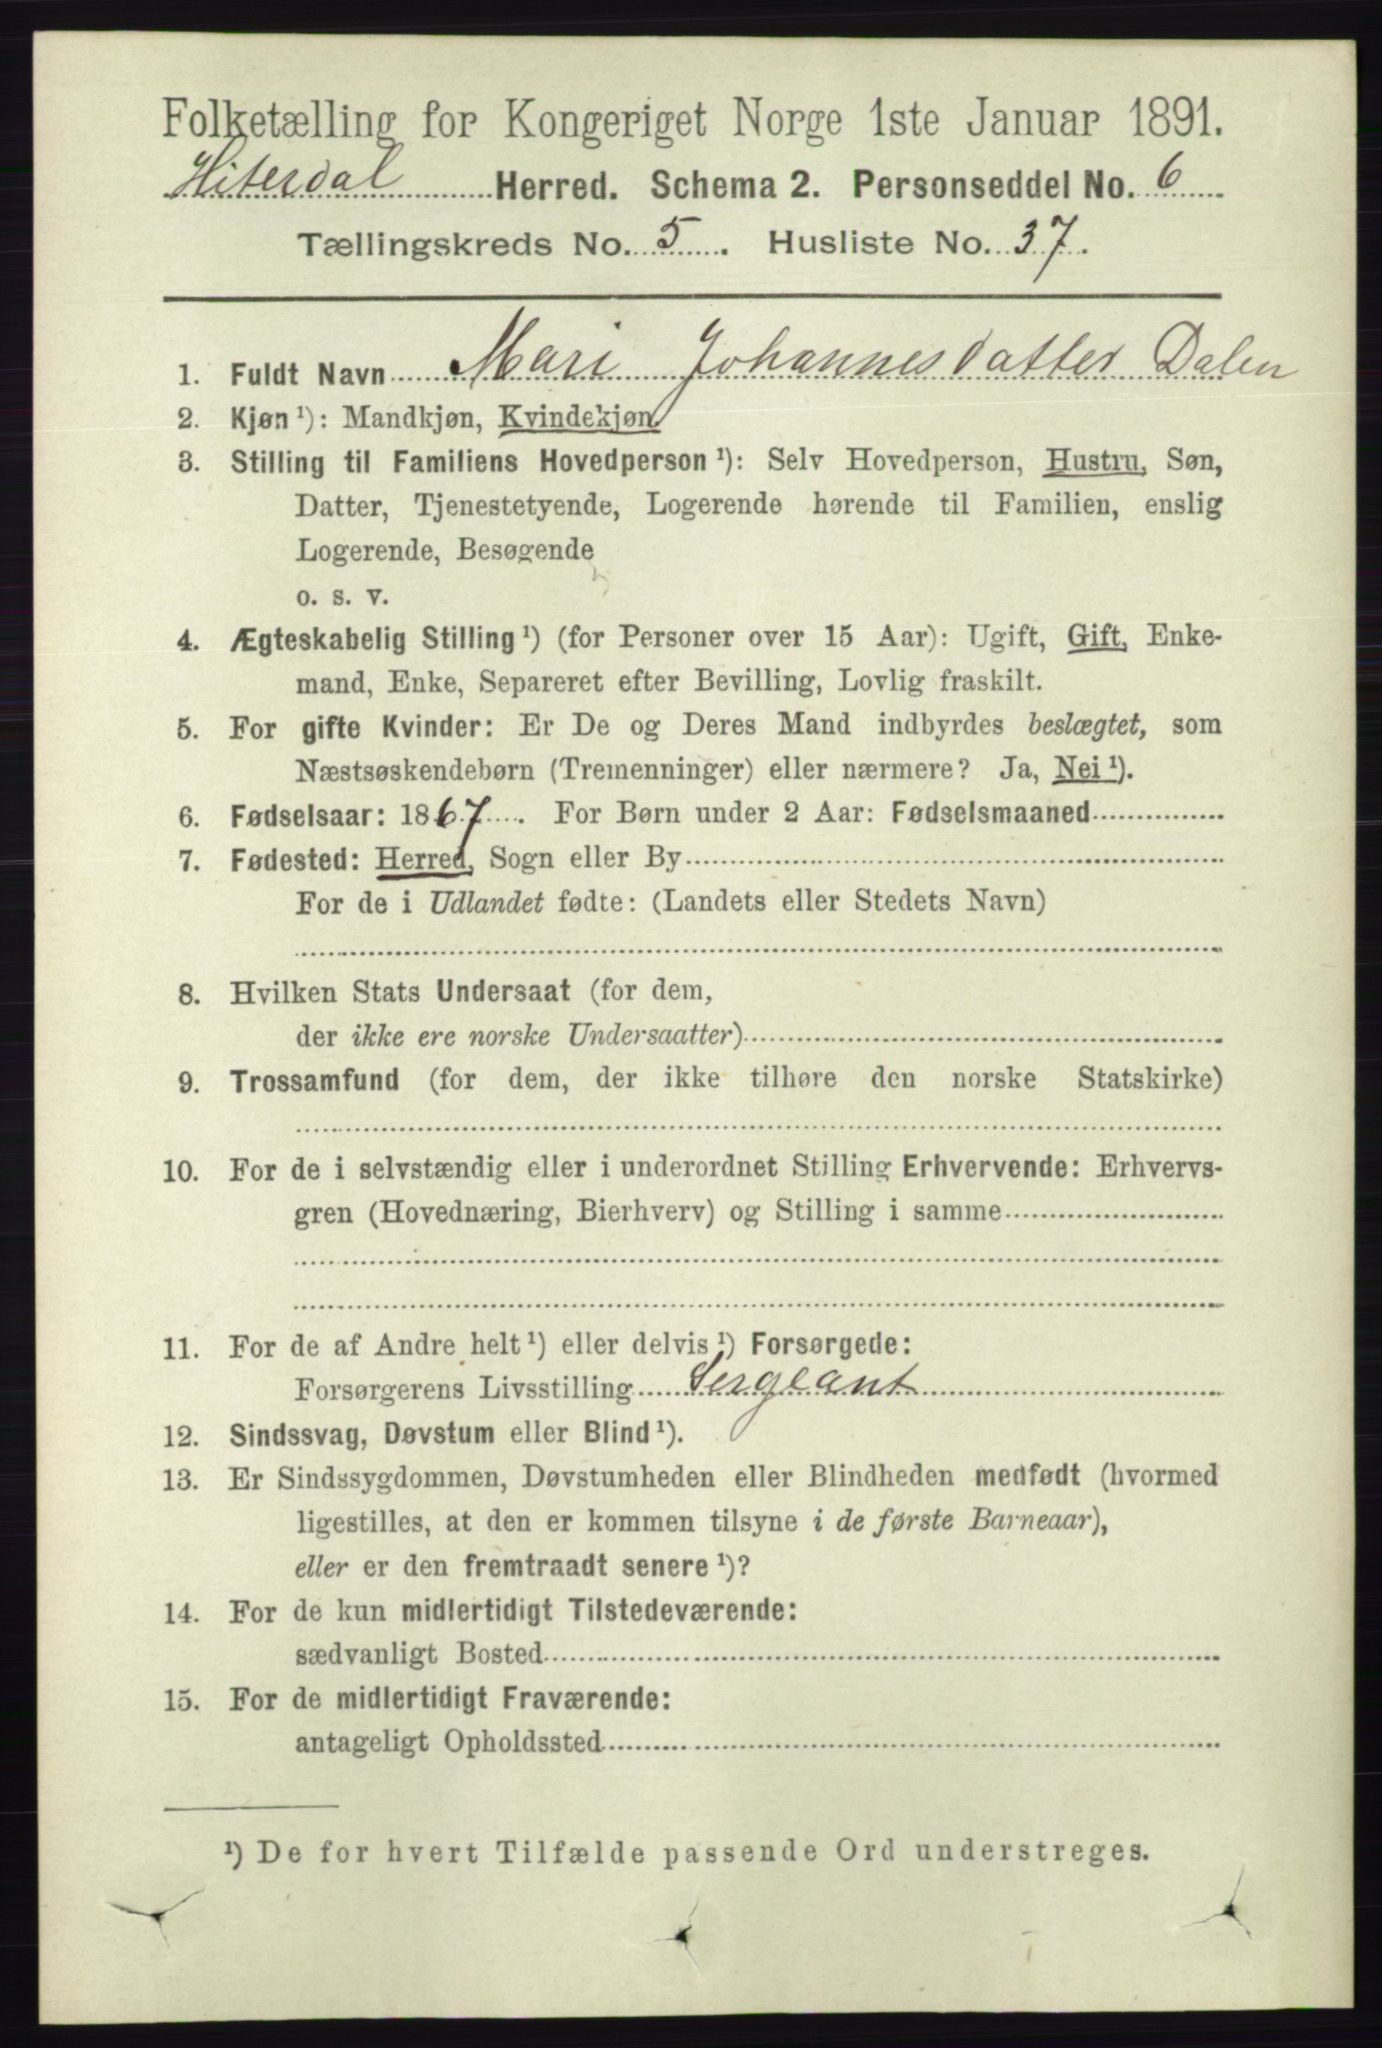 Folketælling for Kongeriget Norge 1ste Januar 1891.
Hiterdal Herred. Schema 2. Personseddel No. 6
Tællingskreds No. 5. Husliste No. 37.
1. Fuldt Navn Mari Johannesdatter Dalen
2. Kjøn ¹): Mandkjøn, Kvindekjøn
3. Stilling til Familiens Hovedperson ¹): Selv Hovedperson, Hustru, Søn,
Datter, Tjenestetyende, Logerende hørende til Familien, enslig
Logerende, Besøgende
o. s. v.
4. Ægteskabelig Stilling ¹) (for Personer over 15 Aar): Ugift, Gift, Enke-
mand, Enke, Separeret efter Bevilling, Lovlig fraskilt.
5. For gifte Kvinder: Er De og Deres Mand indbyrdes beslægtet, som
Næstsøskendebørn (Tremenninger) eller nærmere? Ja, Nei ¹).
6. Fødselsaar: 1867. For Børn under 2 Aar: Fødselsmaaned
7. Fødested: Herred, Sogn eller By
For de i Udlandet fødte: (Landets eller Stedets Navn)
8. Hvilken Stats Undersaat (for dem,
der ikke ere norske Undersaatter)
9. Trossamfund (for dem, der ikke tilhøre den norske Statskirke)
10. For de i selvstændig eller i underordnet Stilling Erhvervende: Erhvervs-
gren (Hovednæring, Bierhverv) og Stilling i samme
11. For de af Andre helt ¹) eller delvis ¹) Forsørgede:
Forsørgerens Livsstilling Sergeant
12. Sindssvag, Døvstum eller Blind ¹).
13. Er Sindssygdommen, Døvstumheden eller Blindheden medfødt (hvormed
ligestilles, at den er kommen tilsyne i de første Barneaar),
eller er den fremtraadt senere ¹)?
14. For de kun midlertidigt Tilstedeværende:
sædvanligt Bosted
15. For de midlertidigt Fraværende:
antageligt Opholdssted
¹) De for hvert Tilfælde passende Ord understreges.